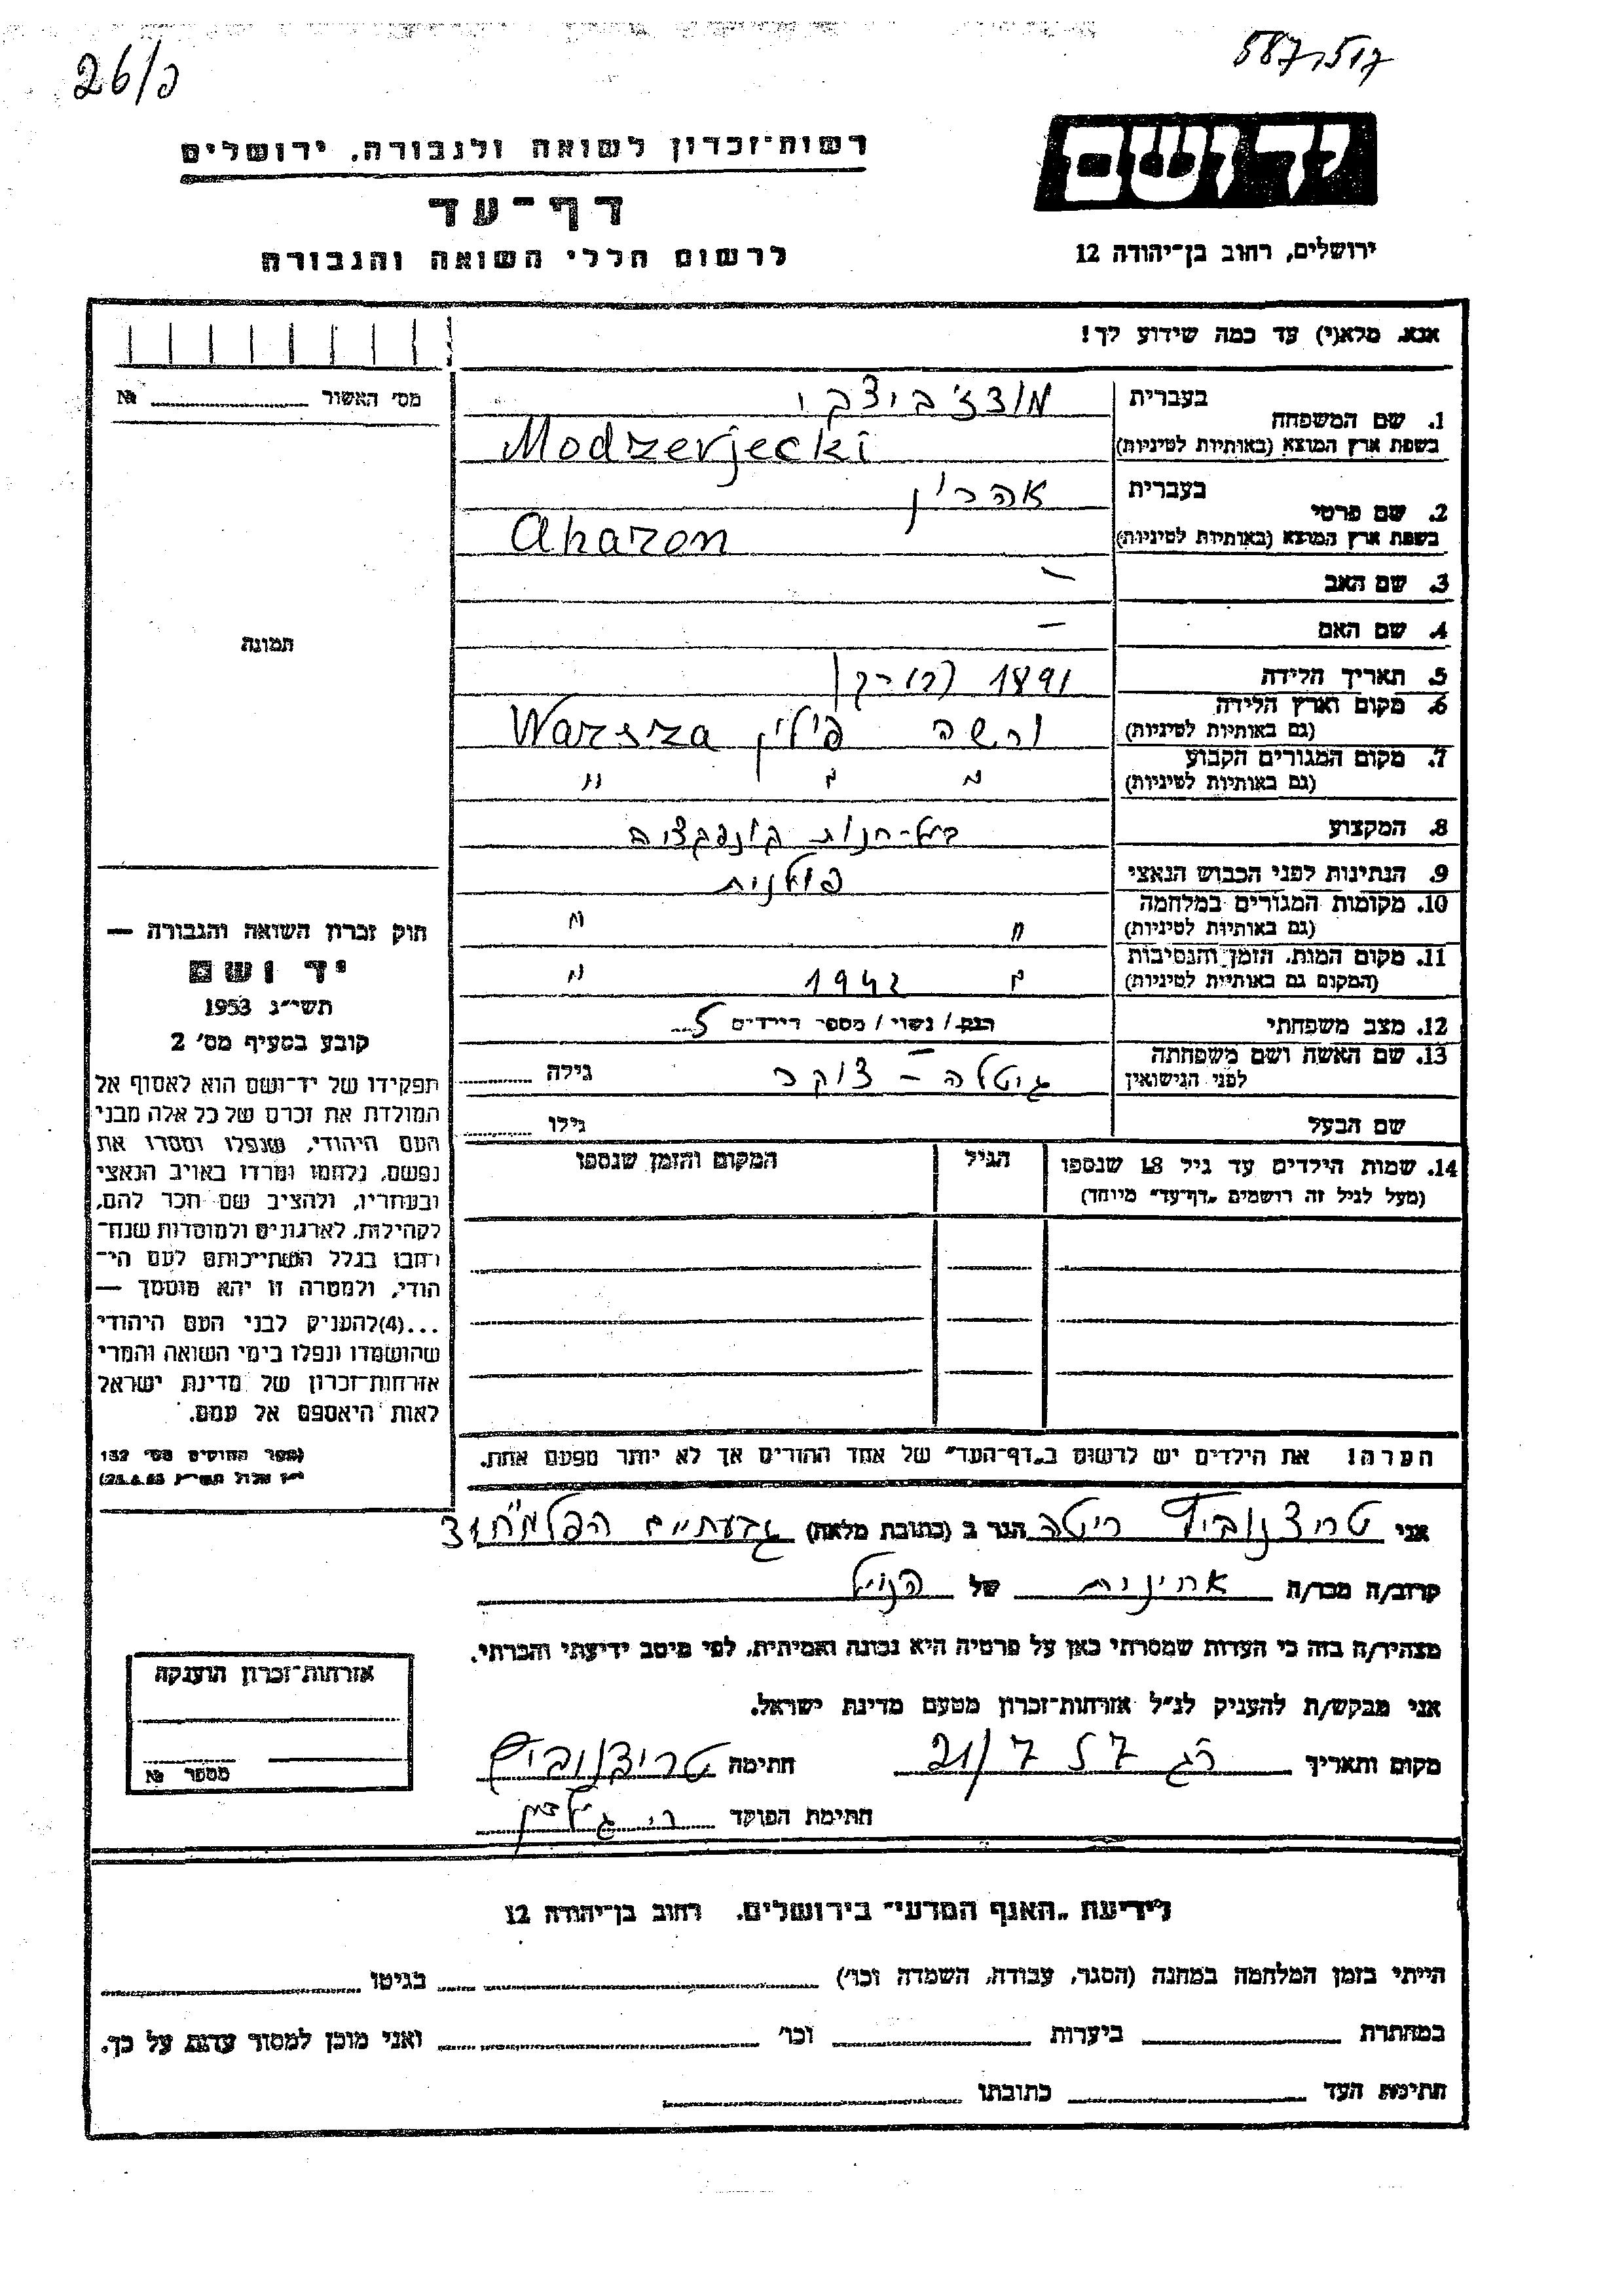 26/כ
587/517
רשות-זכרון לשואה ולגבורה, ירושלים
יד ושם
דף-עד
לרשום חללי השואה והגבורה
ירושלים, רחוב בן-יהודה 12
אנא, מלא(י) עד כמה שידוע לך!
מס׳ האשור № 
תמונה
1. שם המשפחה בעברית מודז׳ביצקי
בשפת ארץ המוצא (באותיות לטיניות) Modzerjecki
2. שם פרטי בעברית אהרון
בשפת ארץ המוצא (באותיות לטיניות) Aharon
3. שם האב –
4. שם האם –
5. תאריך הלידה 1891
6. מקום וארץ הלידה ורשה פולין Warsza
(גם באותיות לטיניות)
7. מקום המגורים הקבוע " " "
(גם באותיות לטיניות)
8. המקצוע בעל-חנות קונפקציה
9. הנתינות לפני הכבוש הנאצי פולנית
10. מקומות המגורים במלחמה " "
(גם באותיות לטיניות)
11. מקום המות, הזמן והנסיבות " 1942 "
(המקום גם באותיות לטיניות)
12. מצב משפחתי רווק / נשוי / מספר הילדים 5
13. שם האשה ושם משפחתה גיטלה – צוקר גילה
לפני הנישואין
שם הבעל גילו
14. שמות הילדים עד גיל 18 שנספו הגיל המקום והזמן שנספו
(מעל לגיל זה רושמים „דף-עד" מיוחד)
הערה! את הילדים יש לרשום ב„דף-העד" של אחד ההורים אך לא יותר מפעם אחת.
חוק זכרון השואה והגבורה —
יד ושם
תשי״ג 1953
קובע בסעיף מס׳ 2
תפקידו של יד-ושם הוא לאסוף אל
המולדת את זכרם של כל אלה מבני
העם היהודי, שנפלו ומסרו את
נפשם, נלחמו ומרדו באויב הנאצי
ובעוזריו, ולהציב שם וזכר להם,
לקהילות, לארגונים ולמוסדות שנח-
רבו בגלל השתייכותם לעם הי-
הודי, ולמטרה זו יהא מוסמך —
...(4)להעניק לבני העם היהודי
שהושמדו ונפלו בימי השואה והמרי
אזרחות-זכרון של מדינת ישראל
לאות היאספם אל עמם.
(ספר החוקים מס׳ 132
אני טרצנוביץ ריטה הגר ב (כתובת מלאה) גבעתיים הפלמ״ח
קרוב/ה מכר/ה אחינית של הנ״ל
מצהיר/ה בזה כי העדות שמסרתי כאן על פרטיה היא נכונה ואמיתית, לפי מיטב ידיעתי והכרתי.
אני מבקש/ת להעניק לנ״ל אזרחות-זכרון מטעם מדינת ישראל.
מקום ותאריך רג 21/7 57 חתימה טרצנוביץ
חתימת הפוקד
אזרחות-זכרון הוענקה
מספר №
לידיעת „האגף המדעי" בירושלים, רחוב בן-יהודה 12
הייתי בזמן המלחמה במחנה (הסגר, עבודה, השמדה וכו׳) בגיטו
במחתרת ביערות וכו׳ ואני מוכן למסור עדות על כך.
חתימת העד כתובתו